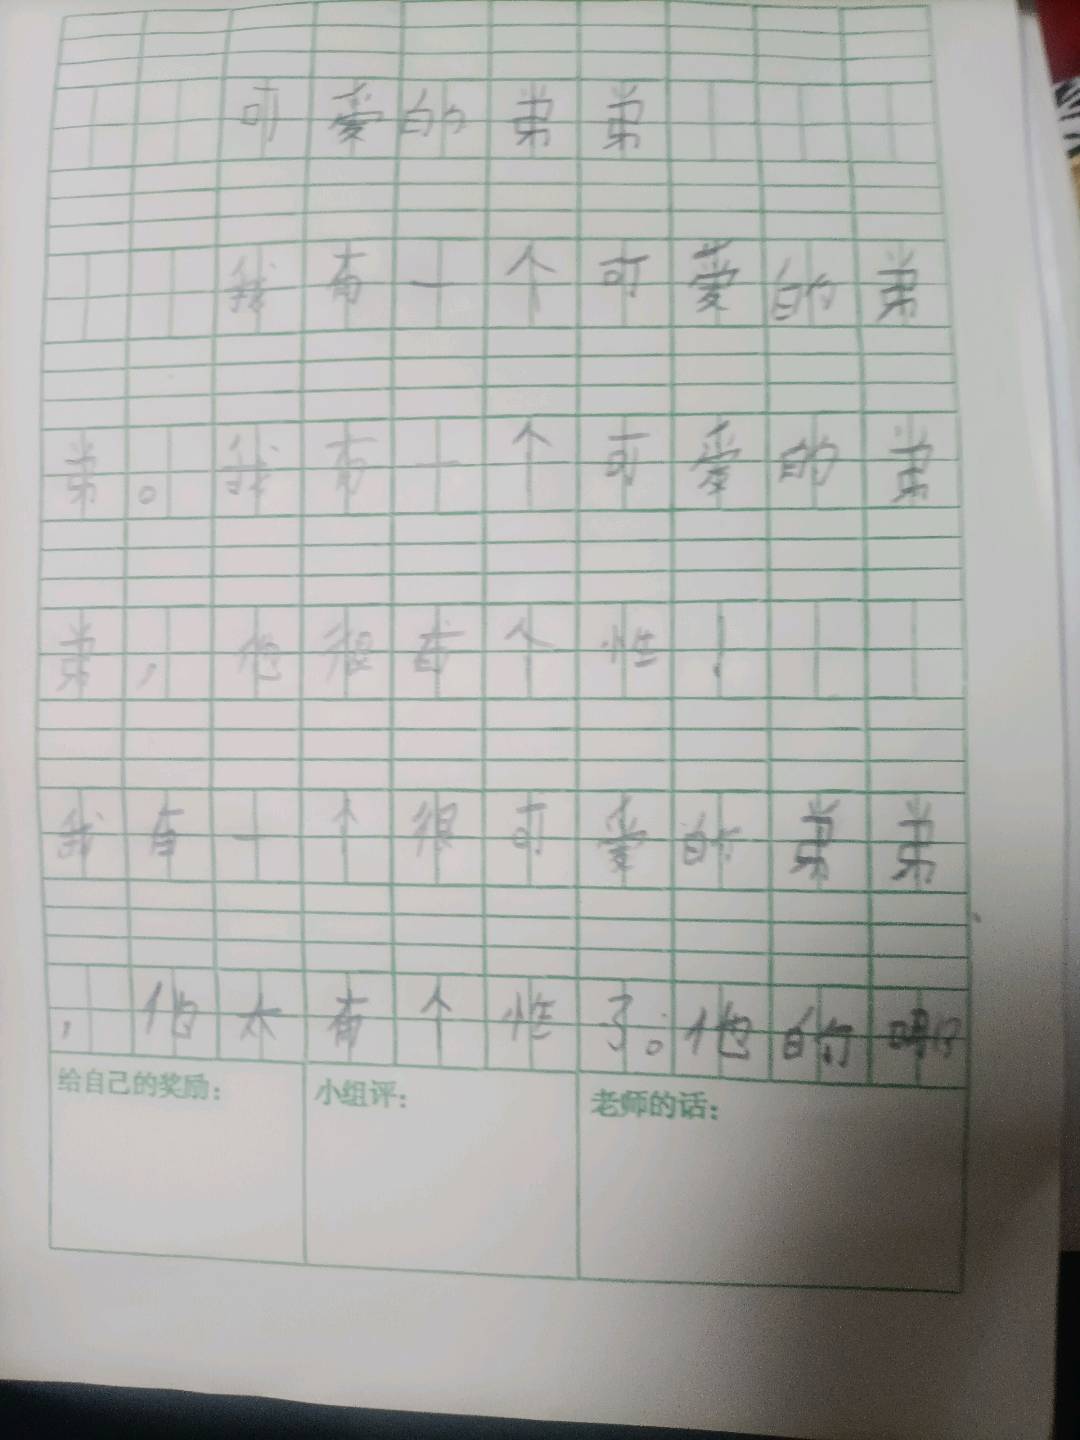 可爱的弟弟
我有一个可爱的弟
弟。我有一个可爱的弟
弟，他很有个性！
我有一个很可爱的弟弟
，他太有个性了。他的
给自己的奖励：
小组评：
老师的话：